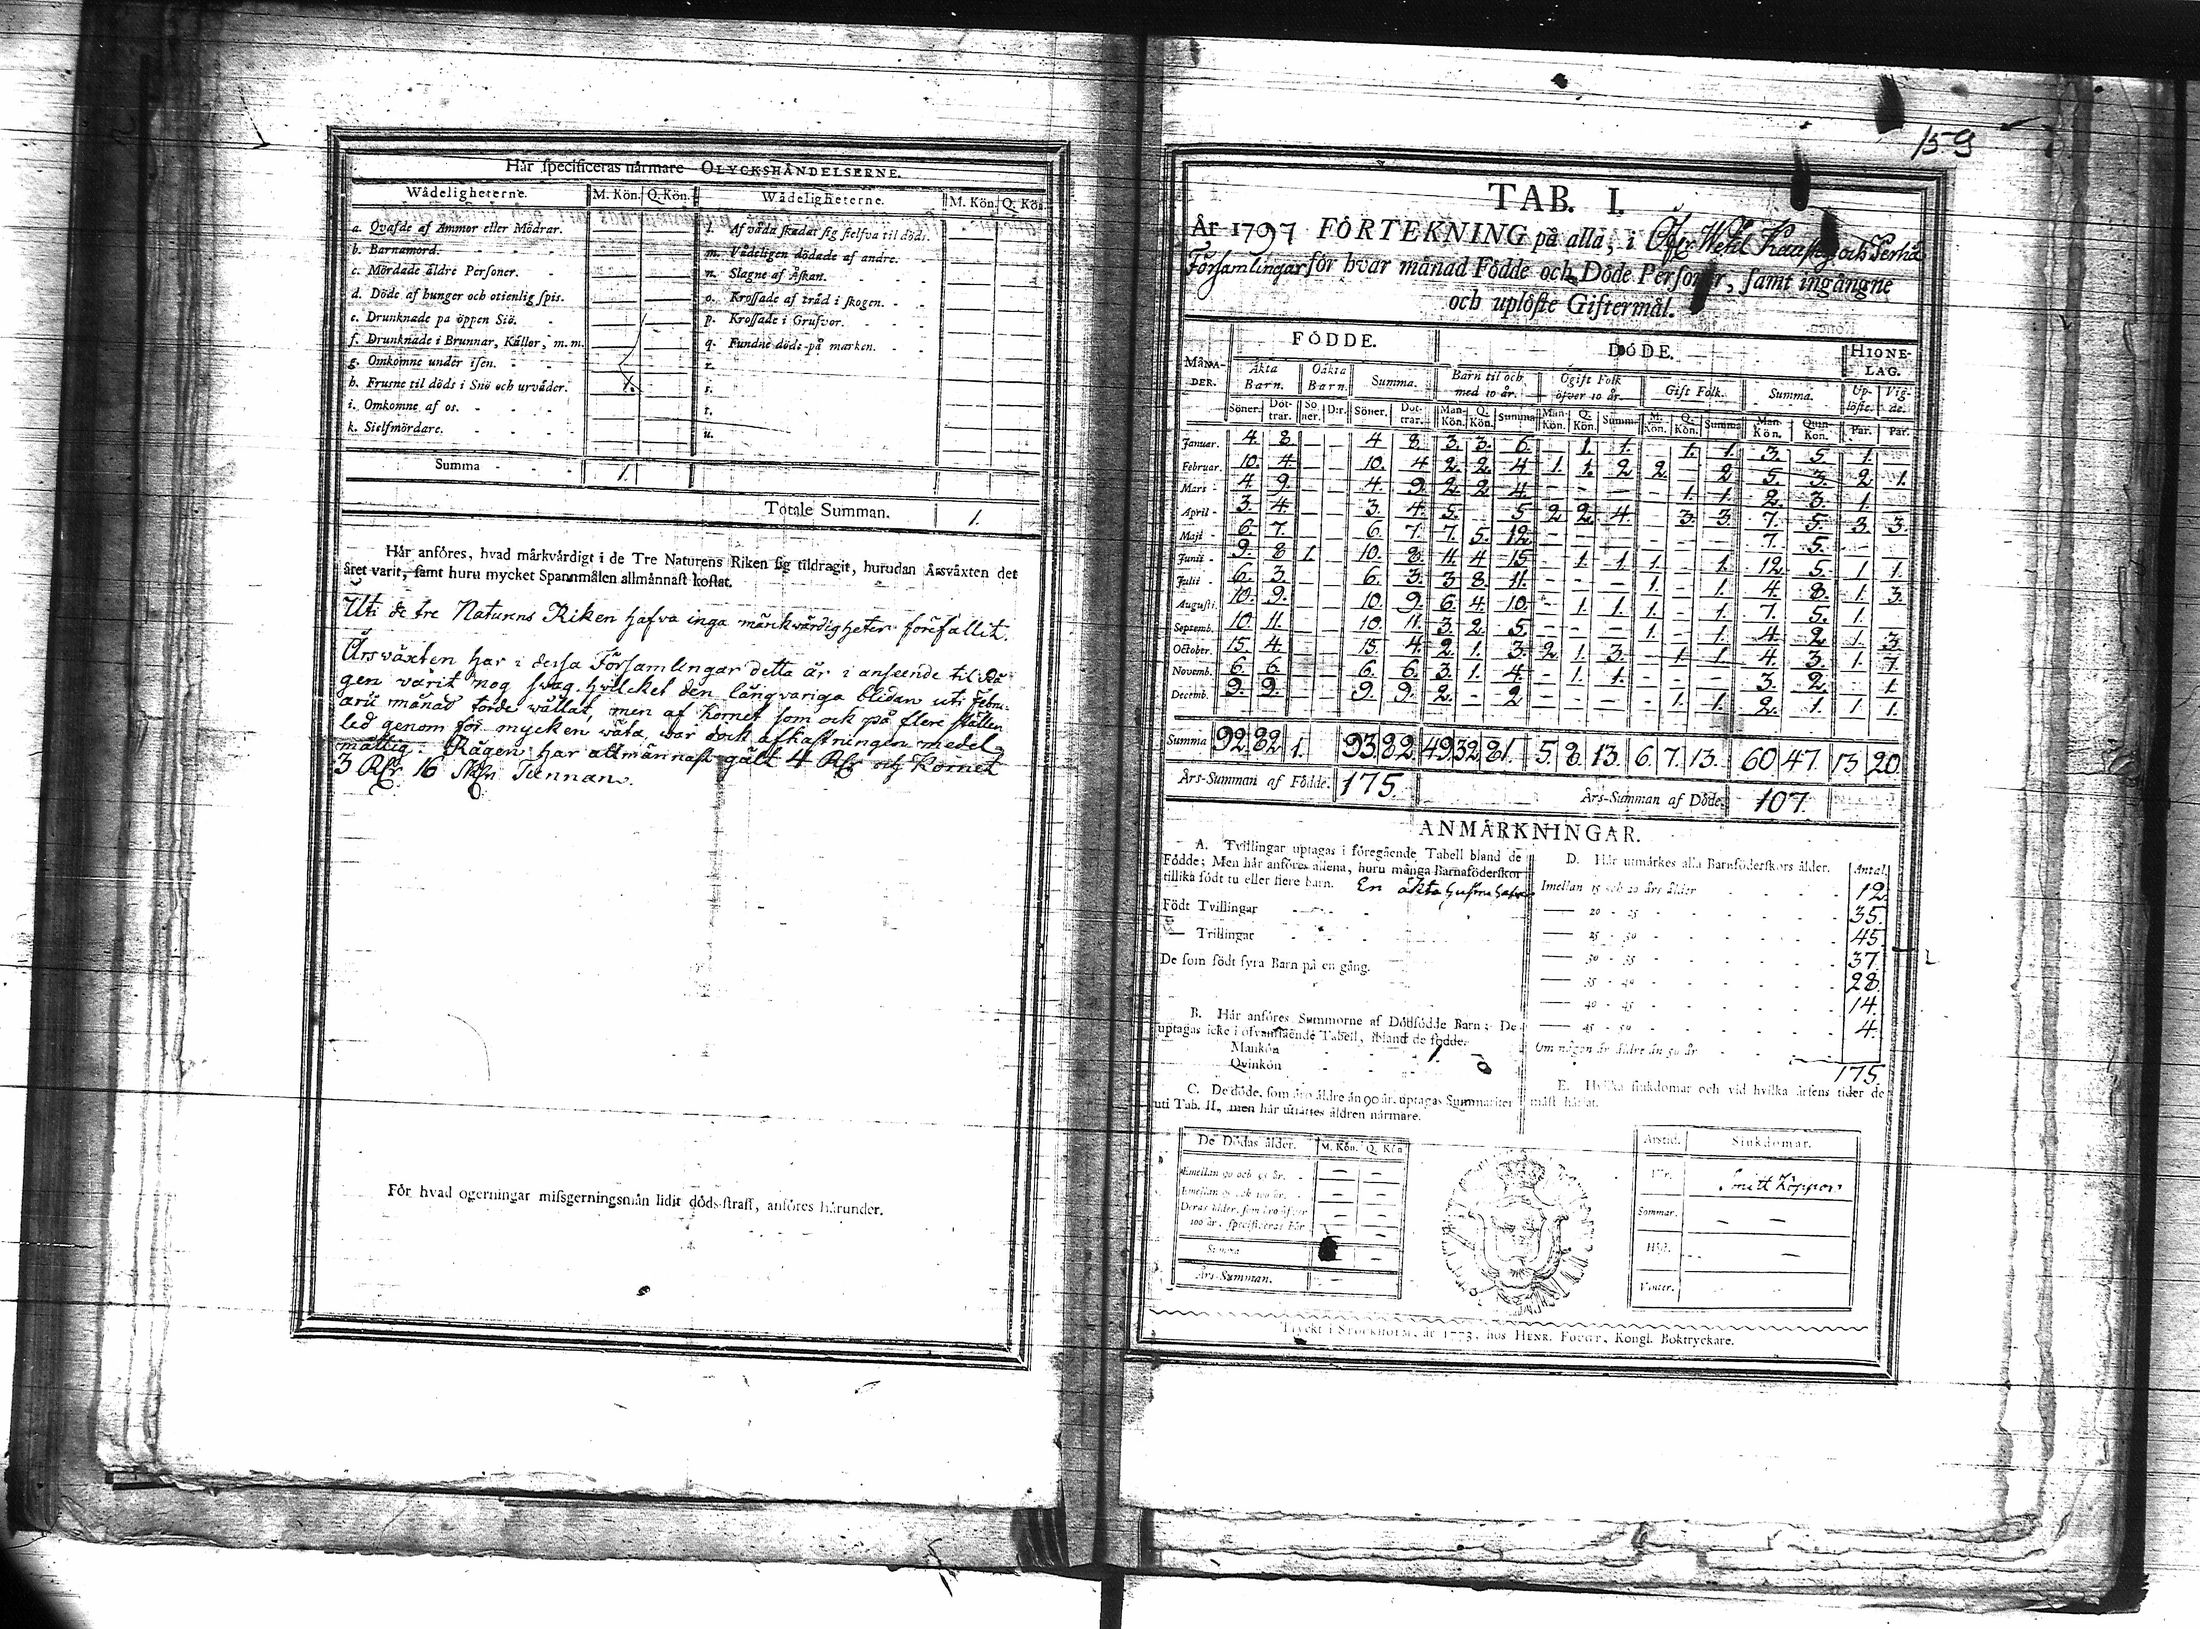 Hår specificeras nårmare OLYCKSHÅNDELSERNE.
Wådeligheterne. M. Kön. Q. Kön. Wådeligheterne. M. Kön. Q. Kön
a. Qvåfde af Ammor eller Mödrar.
b. Barnamord.
c. Mördade åldre Personer.
d. Döde af hunger och otienlig spis.
e. Drunknade på öppen Siö.
f. Drunknade i Brunnar, Källor, m.m.
g. Omkomne under isen.
h. Frusne til döds i Snö och urvåder. 1.
i. Omkomne af os.
k. Sielfmördare.
l. Af våda skadat sig sielfva til döds.
m. Vådeligen dödade af andre.
n. Slagne af Åskan.
o. Krossade af tråd i skogen.
p. Krossade i Grufvor.
q. Fundne döde på marken.
r.
s.
t.
u.
Summa 1.
Totale Summan. 1.
Hår anföres, hvad mårkvårdigt i de Tre Naturens Riken sig tildragit, hurudan Årsvåxten det
året varit, samt huru mycket Spannmålen allmånnast kostat.
Uti de tre Naturens Riken hafva inga märkvärdigheter förefallit.
Årsväxten har i dessa Församlingar detta år i anseende til Rå
gen varit nog svag, hvilcket den långvariga blidan uti Febru-
arii månad torde vållat, men af Kornet som ock på flere ställen
led genom för mycken väta, var dock afkastningen medel-
måttig. Rågen har allmännast gält 4 Rdr och Kornet
3 Rdr 16 sk. Tunnan.
För hvad ogerningar missgerningsmån lidit döds-straff, anföres hårunder.
159
TAB. I.
År 1797 FÖRTEKNING på alla, i Öfr Wetil Kaustby och Perho
Församlingar för hvar månad Födde och Döde Personer, samt ingångne
och uplöste Giftermål.
FÖDDE. DÖDE. HIONE-
LAG.
MÅNA-
DER. Åkta
Barn. Oåkta
Barn. Summa. Barn til och
med 10 år. Ogift Folk
öfver 10 år. Gift Folk. Summa. Up-
löste. Vig-
de.
Söner. Döt-
trar. Sö
ner. D:r. Söner. Döt-
trar. Man-
Kön. Q.
Kön. Summa Man-
Kön. Q.
Kön. Summa M.
Kön. Q.
Kön. Summa Man-
Kön. Quin-
Kön. Par. Par.
Januar. 4. 8. — — 4 8. 3. 3. 6. — 1. 1. — 1. 1. 3. 5 1. —
Februar. 10. 4. — — 10. 4 2. 2. 4 1. 1. 2 2. — 2 5. 3. 2 1.
Mars 4 9. — — 4 9. 2. 2 4. — — — — 1. 1. 2. 3. 1. —
April 3. 4. — — 3. 4. 5. — 5 2 2. 4. — 3. 3. 7. 5. 3. 3.
Maji 6. 7. — — 6. 7. 7. 5. 12. — — — — — — 7. 5. — —
Junii 9. 8 1. — 10. 8. 11. 4 15. — 1. 1. 1. — 1. 12. 5. 1. 1.
Julii 6. 3. — — 6. 3. 3 8. 11. — — — 1. — 1. 4. 8. 1. 3.
Augusti. 10. 9. — — 10. 9. 6. 4. 10. — 1. 1. 1. — 1. 7. 5. 1. —
Septemb. 10. 11. — — 10. 11. 3. 2. 5. — — — 1. — 1. 4. 2. 1. 3.
October. 15. 4. — — 15. 4. 2. 1. 3. 2. 1. 3. — 1. 1. 4. 3. 1. 7.
Novemb. 6. 6. — — 6. 6. 3. 1. 4. — 1. 1. — — — 3. 2. — 1.
Decemb. 9. 9. — — 9. 9. 2. — 2 — — — — 1. 1. 2. 1. 1. 1.
Summa 92. 82 1. 93. 82. 49. 32. 81. 5. 8. 13. 6. 7. 13. 60 47. 13 20.
Års-Summan af Födde. 175. Års-Summan af Döde. 107.
ANMÅRKNINGAR.
A. Tvillingar uptagas i föregående Tabell bland de
Födde; Men hår anföres allena, huru många Barnaföderskor
tillika födt tu eller flere barn. En äkta hustru
Födt Tvillingar
— Trillingar
De som födt fyra Barn på en gång.
B. Hår anföres Summorne af Dödfödde Barn: De
uptagas icke i ofvanstående Tabell, ibland de födde.
Mankön 1.
Qvinkön
C. De döde, som åro åldre ån 90 år, uptagas Summariter
uti Tab. II., men hår utsåttes åldren nårmare.
De Dödas ålder. M. Kön. Q. Kön
Emellan 90 och 95 år. — —
Emellan 95 och 100 år. — —
Deras ålder, som åro öfver
100 år, specificeras hår — —
Summa —
Års-Summan. —
D. Hår utmårkes alla Barnföderskors ålder. Antal.
Imellan 15 och 20 års ålder 12.
— 20 - 25 35.
— 25 - 30 45.
— 30 - 35 37.
— 35 - 40 28.
— 40 - 45 14.
— 45 - 50 4.
Om någon år åldre ån 50 år —
175.
E. Hvilka siukdomar och vid hvilka årsens tider de
måst hårjat.
Årstid. Siukdomar.
Vår. Smitt Koppor
Sommar. — —
Höst. —
Vinter.
Tryckt i STOCKHOLM, år 1773, hos HENR. FOUGT, Kongl. Boktryckare.